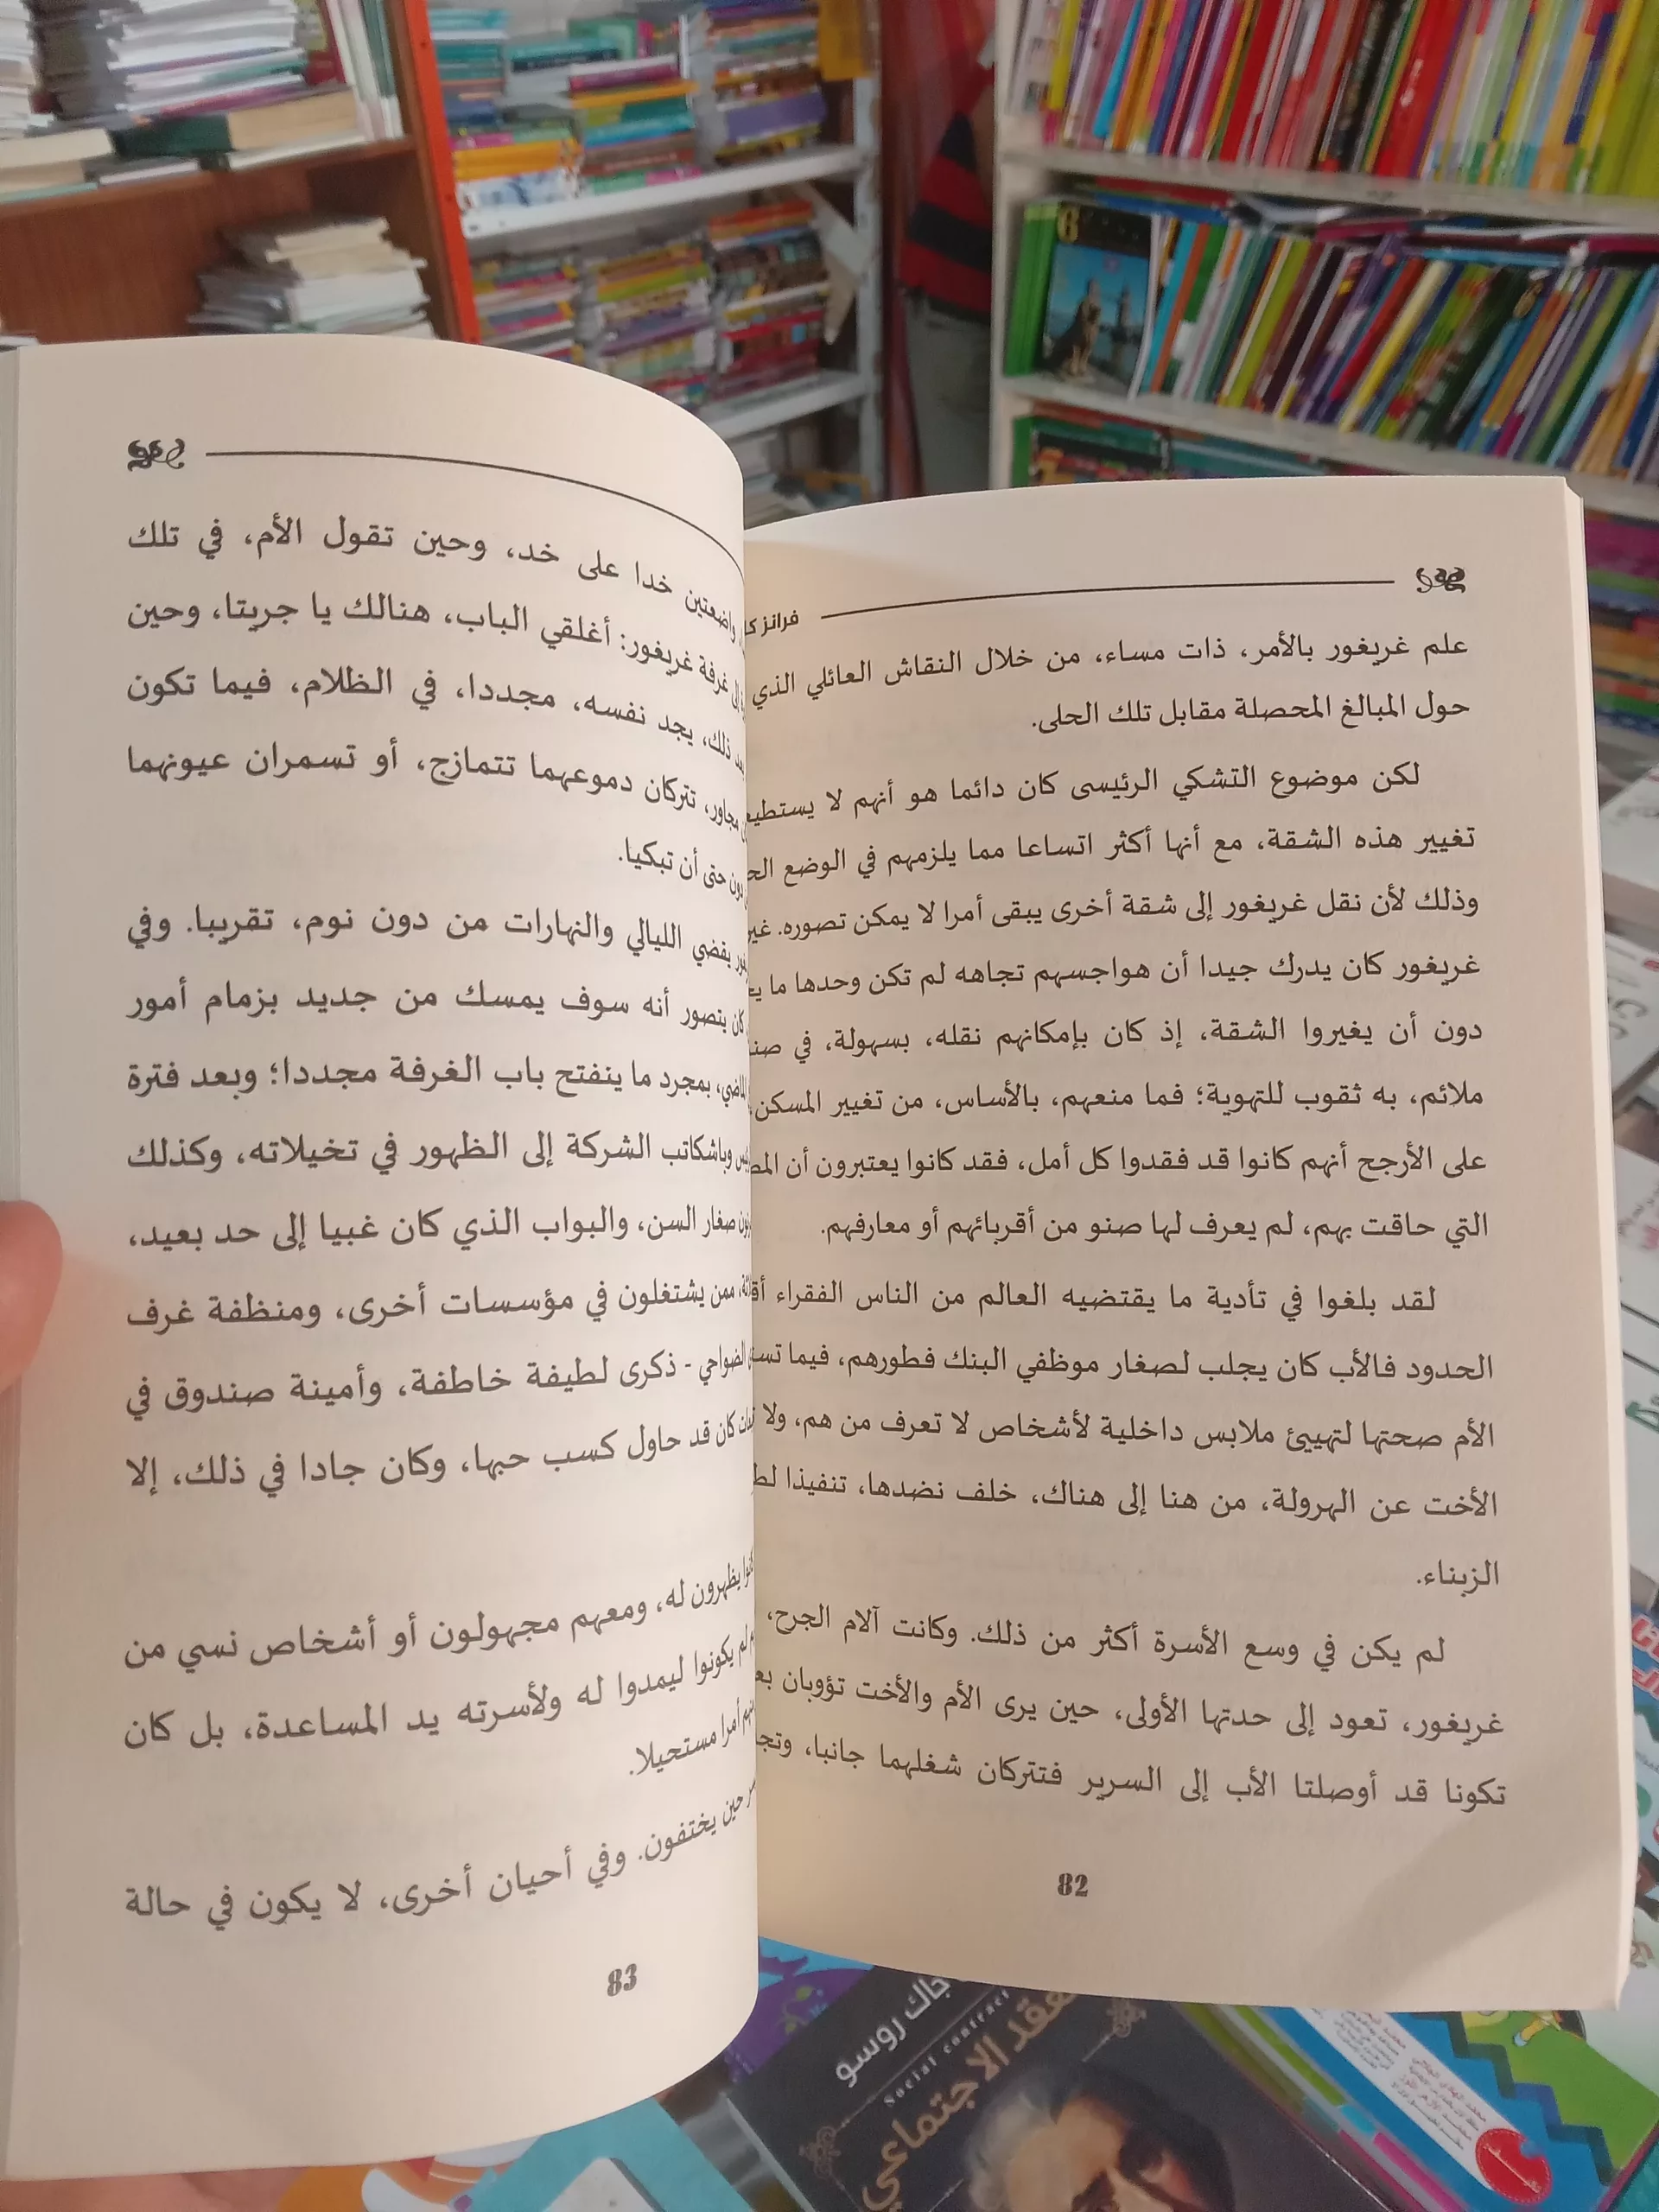 فرانز
علم غريغور بالأمر، ذات مساء، من خلال النقاش العائلي الذي
حول المبالغ المحصلة مقابل تلك الحلى.
لكن موضوع التشكي الرئيسى كان دائما هو أنهم لا
تغيير هذه الشقة، مع أنها أكثر اتساعا مما يلزمهم في الوضع
وذلك لأن نقل غريغور إلى شقة أخرى يبقى أمرا لا يمكن تصوره.
غريغور كان يدرك جيدا أن هواجسهم تجاهه لم تكن وحدها ما
دون أن يغيروا الشقة، إذ كان بإمكانهم نقله، بسهولة، في
ملائم، به ثقوب للتهوية؛ فما منعهم، بالأساس، من تغيير المسكن
على الأرجح أنهم كانوا قد فقدوا كل أمل، فقد كانوا يعتبرون أن
التي حاقت بهم، لم يعرف لها صنو من أقربائهم أو معارفهم.
لقد بلغوا في تأدية ما يقتضيه العالم من الناس الفقراء
الحدود فالأب كان يجلب لصغار موظفي البنك فطورهم، فيما
الأم صحتها لتهييئ ملابس داخلية لأشخاص لا تعرف من هم، ولا
الأخت عن الهرولة، من هنا إلى هناك، خلف نضدها، تنفيذا
الزبناء.
لم يكن في وسع الأسرة أكثر من ذلك. وكانت آلام الجرح،
غريغور، تعود إلى حدتها الأولى، حين يرى الأم والأخت تؤوبان
تكونا قد أوصلتا الأب إلى السرير فتتركان شغلهما جانبا،
82
واضعتين خدا على خد، وحين تقول الأم، في تلك
غرفة غريغور: أغلقي الباب، هنالك يا جريتا، وحين
ذلك، يجد نفسه، مجددا، في الظلام، فيما تكون
مجاور، تتركان دموعهما تتمازج، أو تسمران عيونهما
دون حتى أن تبكيا.
يقضي الليالي والنهارات من دون نوم، تقريبا. وفي
كان يتصور أنه سوف يمسك من جديد بزمام أمور
بمجرد ما ينفتح باب الغرفة مجددا؛ وبعد فترة
وباشكاتب الشركة إلى الظهور في تخيلاته، وكذلك
صغار السن، والبواب الذي كان غبيا إلى حد بعيد،
ممن يشتغلون في مؤسسات أخرى، ومنظفة غرف
الضواحي - ذكرى لطيفة خاطفة، وأمينة صندوق في
كان قد حاول كسب حبها، وكان جادا في ذلك، إلا
يظهرون له، ومعهم مجهولون أو أشخاص نسي من
لم يكونوا ليمدوا له ولأسرته يد المساعدة، بل كان
أمرا مستحيلا.
حين يختفون. وفي أحيان أخرى، لا يكون في حالة
83
جاك روسو
Social contract
العقد الاجتماعي
6